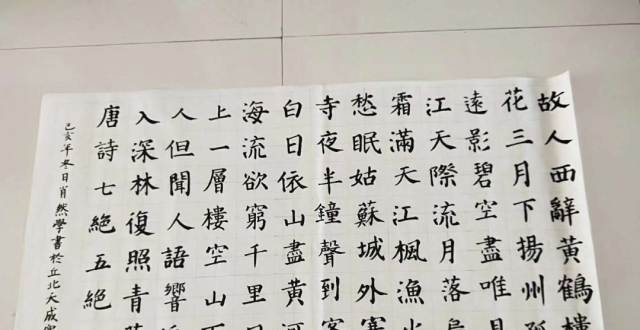 故人西辭黃鶴樓
花三月下揚州
遠影碧空盡唯見
江天際流月落
霜滿天江楓漁火
愁眠姑蘇城外寒
寺夜半鐘聲到客
白日依山盡黃河
海流欲窮千里目
上一層樓空山不
人但聞人語響
入深林復照青
唐詩七絕五絕
己亥年冬日肖然學書於丘北天成